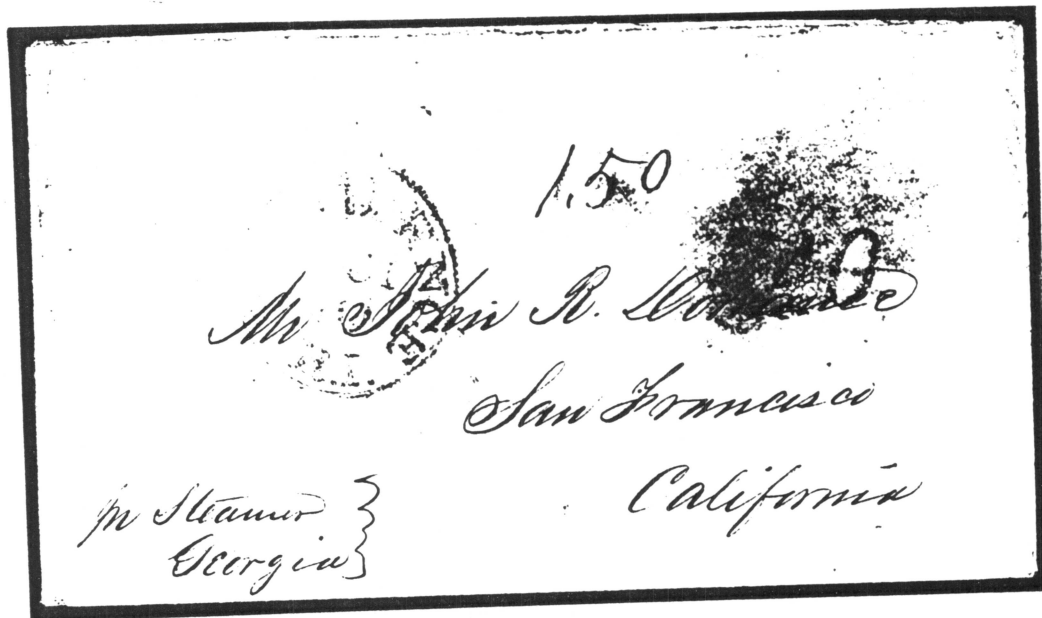 1.50
Mr John R.
San Francisco
California
pr Steamer
Georgia